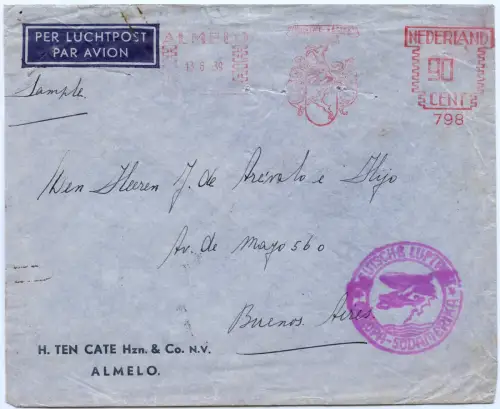 PER LUCHTPOST
PAR AVION
ALMELO
NEDERLAND
90
CENT
798
Sample
Den Heeren J. de Arévalo e Hijo
Av. de Mayo 560
Buenos Aires
DEUTSCHE LUFT
EUROPA-SÜDAMERIKA
H. TEN CATE Hzn. & Co. N.V.
ALMELO.